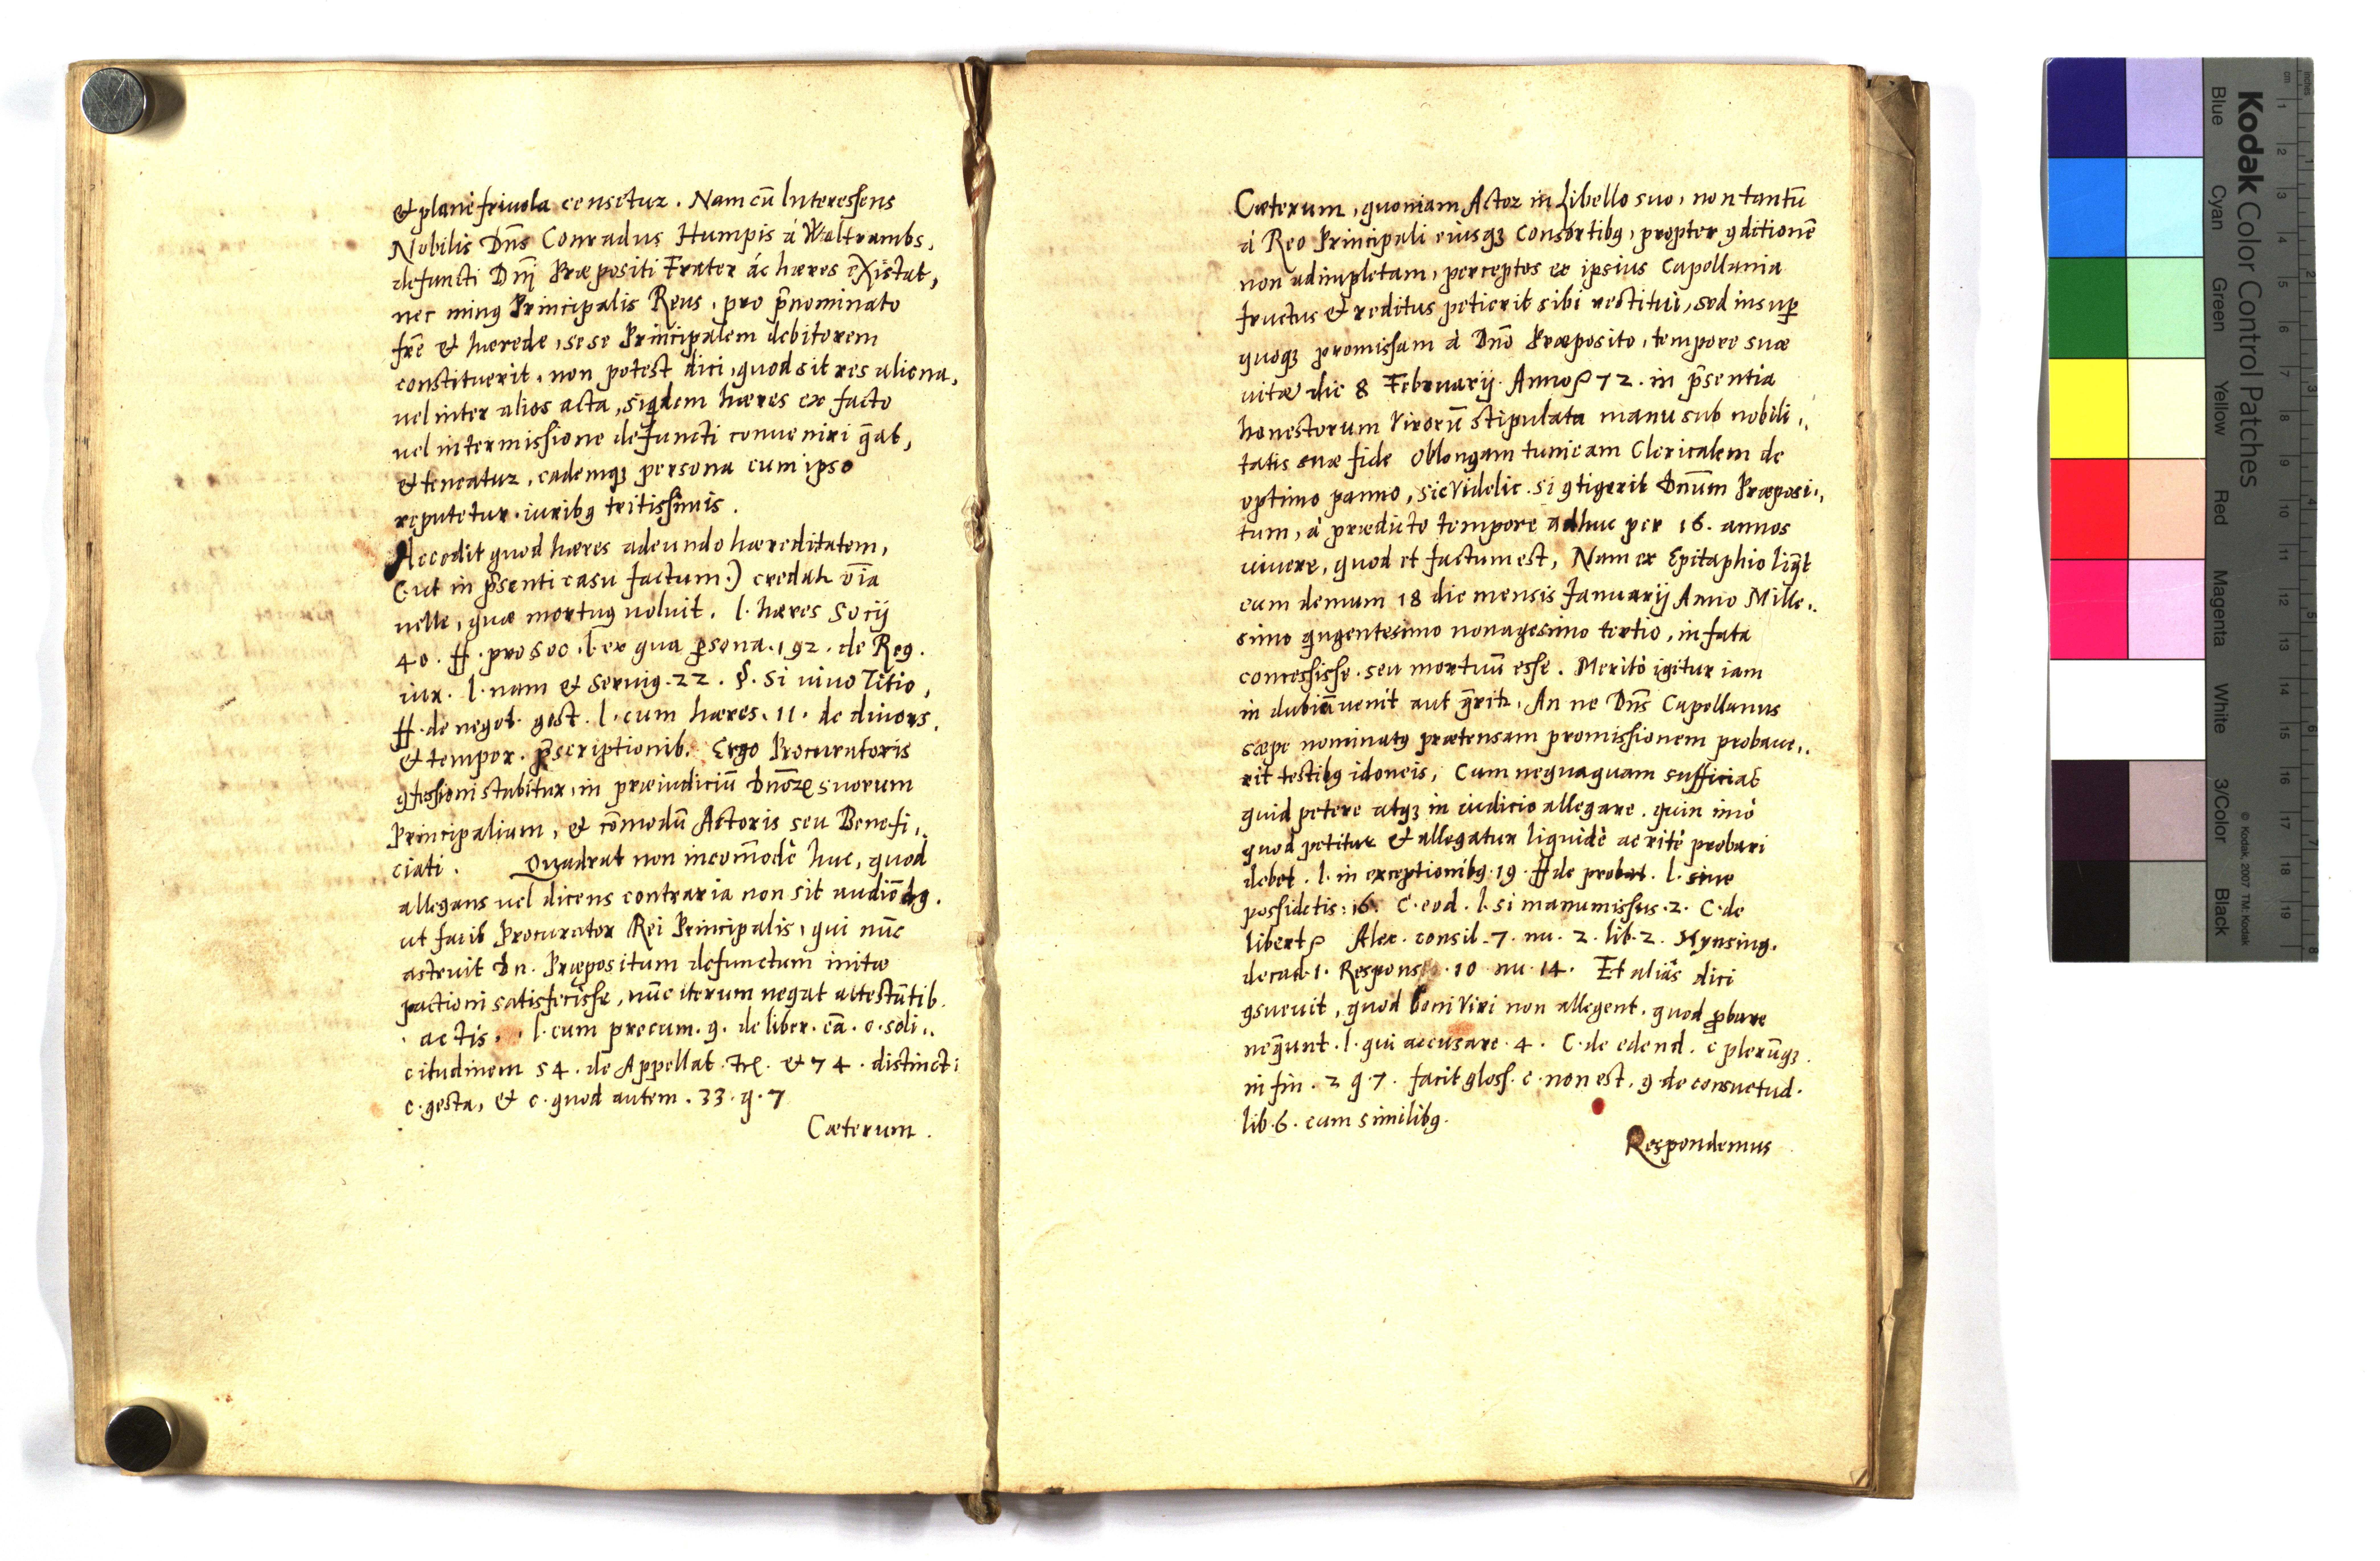 & planè friuola censetur. Nam cū Interessens
Nobilis Dn̄s Conradus Humpis à Waltrambs,
defuncti Dn̄j Præpositi Frater ác hæres existat,
nec minꝰ Principalis Reus, pro p̄nominato
frē & hærede, sese Principalem debitorem
constituerit, non potest dici, quod sit res aliena,
uel inter alios acta, siq̄dem hæres ex facto
uel intermissione defuncti conueniri q̄at,
& teneatur, eademqꝫ persona cum ipso
reputetur iuribꝰ tritissimis.
Accedit quod hæres adeundo hæreditatem,
(: ut in p̄senti casu factum :) credat᷑ oīa
uelle, quæ mortuꝰ uoluit. l. hæres Socij
40. ff. pro Soc. l. ex qua ꝑsona. 192. de Reg.
iur. l. nam & Seruiꝰ. 22. §. Si uiuo Titio,
ff. de negot. gest. l. cum hæres. 11. de diuers.
& tempor. p̄scriptionib. Ergo Procuratoris
ꝯfessioni stabitur, in præiudiciū Dn̄oꝝ suorum
Principalium, & cōmodū Actoris seu Benefi,,
ciati. Quadrat non incom̄odè huc, quod
allegans uel dicens contraria non sit audiēdꝰ.
ut facit Procurator Rei Principalis, qui nūc
astruit Dn. Præpositum defunctum initæ
pactioni satisfecisse, nūc iterum negat attestātib.
actis. l. cum precum. 9. de liber. cā. c. soli,,
citudinem 54. de Appellat. & 74. distinct:
c. gesta, & c. quod autem. 33. q. 7
Cæterum.
Cæterum, quoniam Actor in Libello suo, non tantū
à Reo Principali eiusqꝫ consortibꝰ, propter ꝯditionē
non adimpletam, perceptos ex ipsius Capellania
fructus & reditus petierit sibi restitui, sed insuꝑ
quoqꝫ promissam à Dn̄o Præposito, tempore suæ
uitæ die 8 Februarij Anno 72. in p̄sentia
honestorum Virorū stipulata manu sub nobili,,
tatis suæ fide oblongam tunicam Clericalem de
optimo panno, sic Videlic. si ꝯtigerit Dn̄um Præposi,,
tum, à prædicto tempore adhuc per 16. annos
uiuere, quod et factum est, Nam ex Epitaphio liq̄t
eum demum 18 die mensis Ianuarij Anno Mille,,
simo qu̅gentesimo nonagesimo tertio, in fata
concessisse seu mortuū esse. Meritò igitur iam
in dubiū uenit aut q̄rit᷑, An ne Dn̄s Capellanus
sæpe nominatꝰ prætensam promissionem probaue,,
rit testibꝰ idoneis, Cum nequaquam sufficiat
quid petere atqꝫ in iudicio allegare, quin imò
quod petitur & allegatur liquidè ac ritè probari
debet. l. in exceptionibꝰ. 19. ff de probat. l. siue
possidetis. 16. C. eod. l. si manumissus. 2. C. de
libert Alex. consil. 7. nu. 2. lib. 2. Mynsing.
decad. 1. Respons. 10 nu. 14. Et aliàs dici
ꝯsueuit, quod boni Viri non allegent, quod ꝓbare
neq̄unt. l. qui accusare. 4. C. de edend. c plerūqꝫ.
in fin. 2 q. 7. facit gloss. c. non est. 9. de consuetud.
lib. 6. cum similibꝰ.
Respondemus
Kodak Color Control Patches
© Kodak, 2007 TM: Kodak
Blue Cyan Green Yellow Red Magenta White 3/Color Black
cm 1 2 3 4 5 6 7 8 9 10 11 12 13 14 15 16 17 18 19
inches 1 2 3 4 5 6 7 8